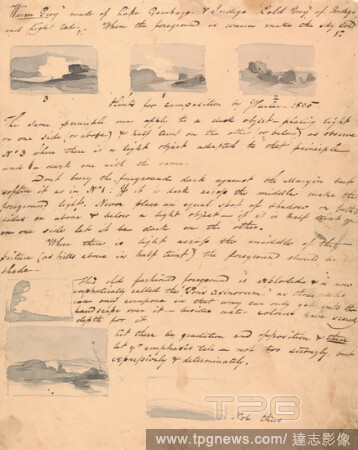 Warm Grey made of Lake Gamboge & Indigo Cold Grey of Indigo
and Light Red. When the foreground is warm make the sky cold
3
Hints for composition by Hunter 1805
The same principle may apply to a dark object placing light
on one side (or above) & half tint on the other (or below) as observe
No 3 when there is a light object adapted to that principle
and the dark one will the same.
Don't bury the foreground dark against the Margin but
soften it as in No 1. If it is dark across the middle make the
foreground light. Never place an equal spot of shadow on both
sides or above & below a light object - if it is half tint on
on one side let it be dark on the other.
When there is light across the middle of the
picture (as hills above in half tint) the foreground should be in
shade.
This old fashioned foreground is exploded & is now
emphatically called the "Pons asinorum" as those asses
can only compose in that way can only get into the
landscape over it - besides water colours have
depth for it
Let there be gradation and opposition & then
let yr emphasis tale - not too strongly but
expressively & determinately.
Not this
TPG
www.tpgnews.com/ 達志影像